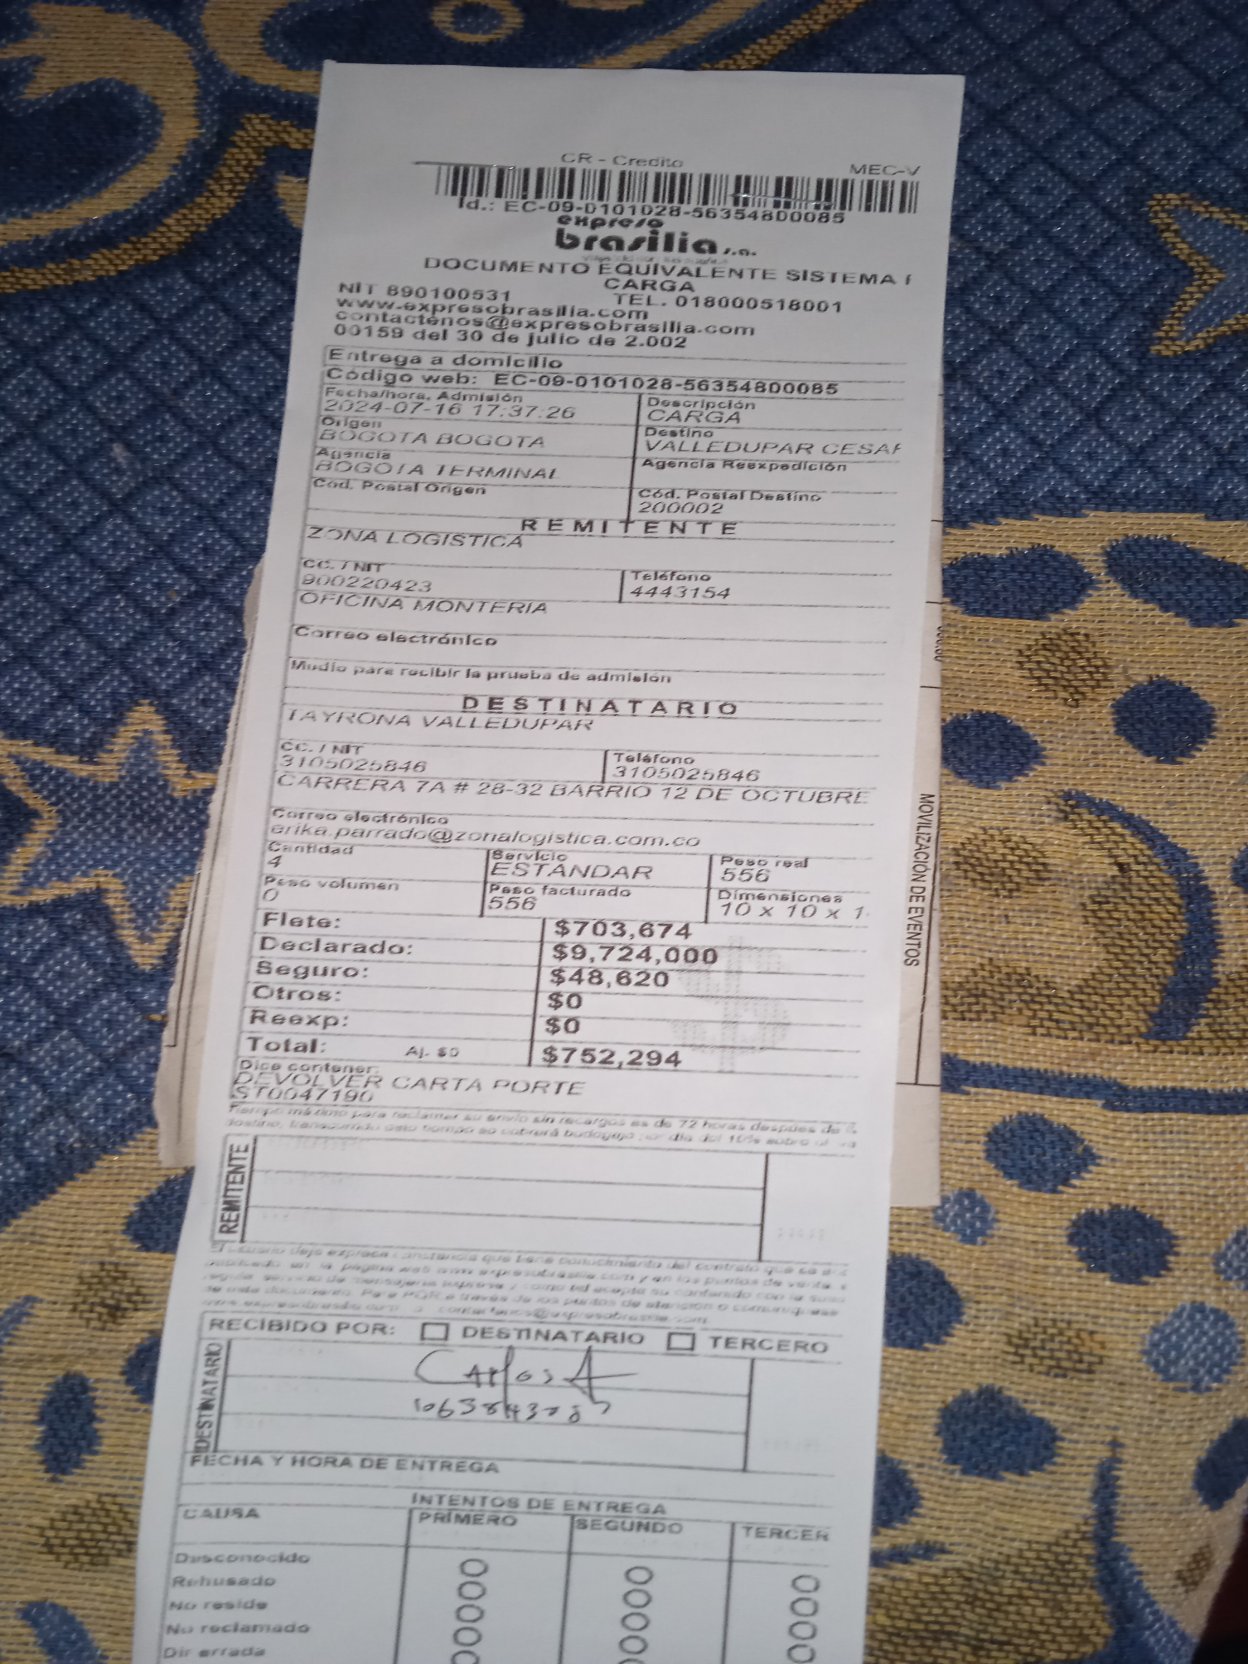 CR - Credito
MEC-V
Id.: EC-09-0101028-56354800085
expreso
brasilia s.a.
DOCUMENTO EQUIVALENTE SISTEMA
CARGA
NIT 890100531 TEL. 018000518001
www.expresobrasilia.com
contactenos@expresobrasilia.com
00159 del 30 de julio de 2.002
Entrega a domicilio
Código web: EC-09-0101028-56354800085
Fecha/hora. Admisión Descripción
2024-07-16 17:37:26 CARGA
Origen Destino
BOGOTA BOGOTA VALLEDUPAR CESAR
Agencia Agencia Reexpedición
BOGOTA TERMINAL
Cód. Postal Origen Cód. Postal Destino
200002
REMITENTE
ZONA LOGISTICA
CC. / NIT Teléfono
900220423 4443154
OFICINA MONTERIA
Correo electrónico
Medio para recibir la prueba de admisión
DESTINATARIO
TAYRONA VALLEDUPAR
CC. / NIT Teléfono
3105025846 3105025846
CARRERA 7A # 28-32 BARRIO 12 DE OCTUBRE
Correo electrónico
erika.parrado@zonalogistica.com.co
Cantidad Servicio Peso real
4 ESTANDAR 556
Peso volumen Peso facturado Dimensiones
0 556 10 x 10 x 1
Flete: $703,674
Declarado: $9,724,000
Seguro: $48,620
Otros: $0
Reexp: $0
Total: Aj. $0 $752,294
Dice contener:
DEVOLVER CARTA PORTE
ST0047190
Tiempo máximo para reclamar su envío sin recargos es de 72 horas después de
destino, transcurrido este tiempo se cobrará bodegaje por día del 10% sobre el
REMITENTE
El usuario deja expresa constancia que tiene conocimiento del contrato que
publicado en la página web www.expresobrasilia.com y en los puntos de venta,
de este documento. Para PQR a través de los puntos de atención o comuníquese
RECIBIDO POR: DESTINATARIO TERCERO
DESTINATARIO
Carlos A
FECHA Y HORA DE ENTREGA
INTENTOS DE ENTREGA
CAUSA PRIMERO SEGUNDO TERCER
Desconocido
Rehusado
No reside
No reclamado
Dir errada
MOVILIZACIÓN DE EVENTOS